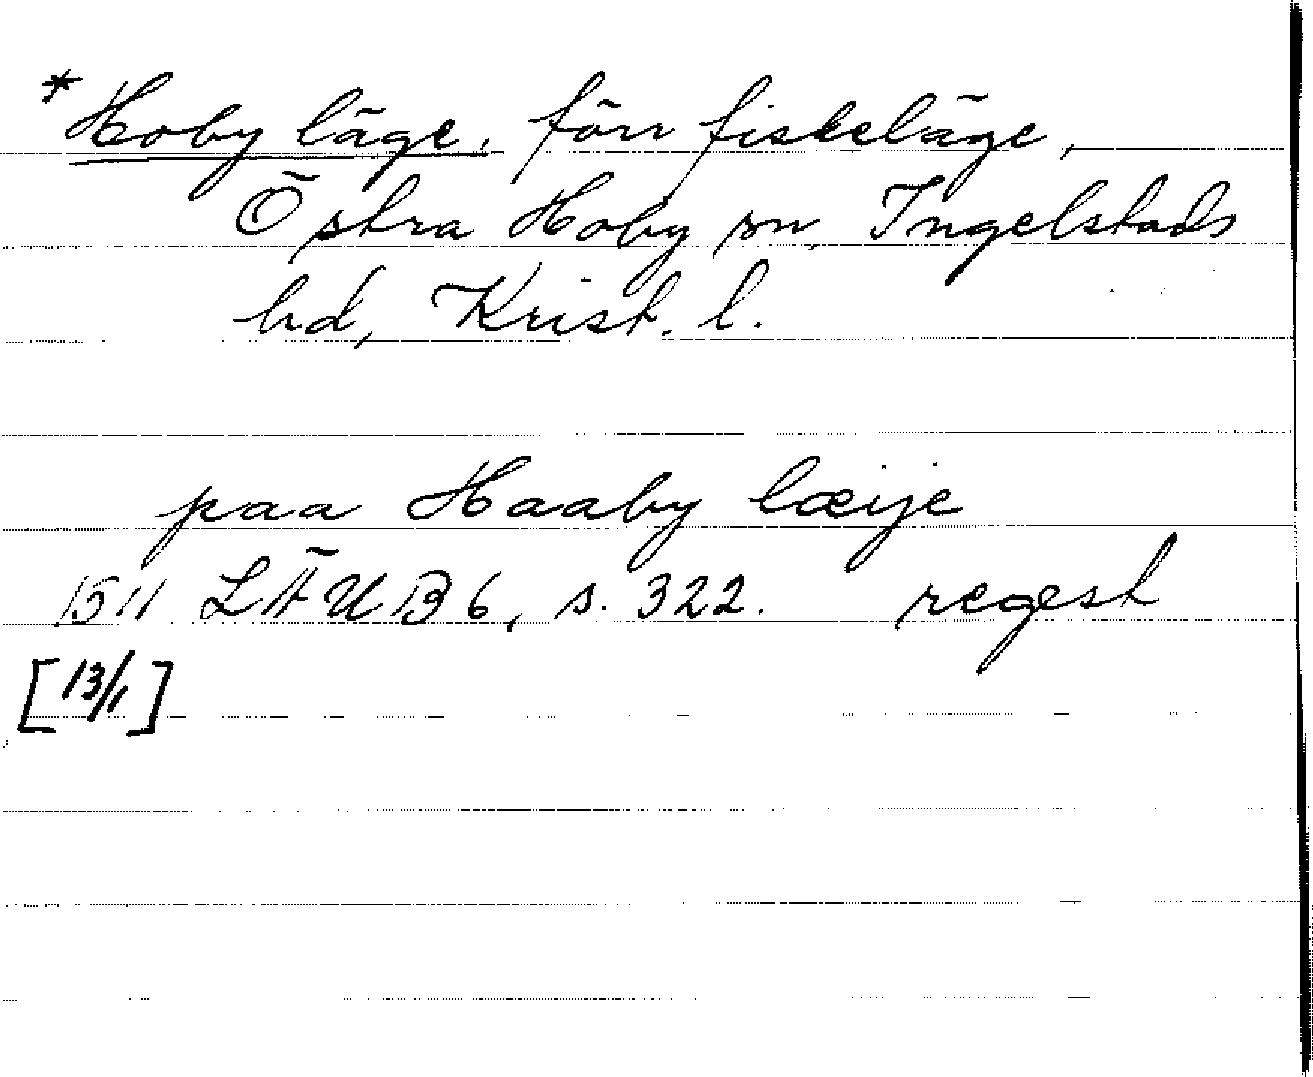 *Hoby läge, förr fiskeläge,
Östra Hoby sn, Ingelstads
hd, Krist. l.
paa Haaby læije
1511 LÄUB 6, s. 322. regest
[13/1]